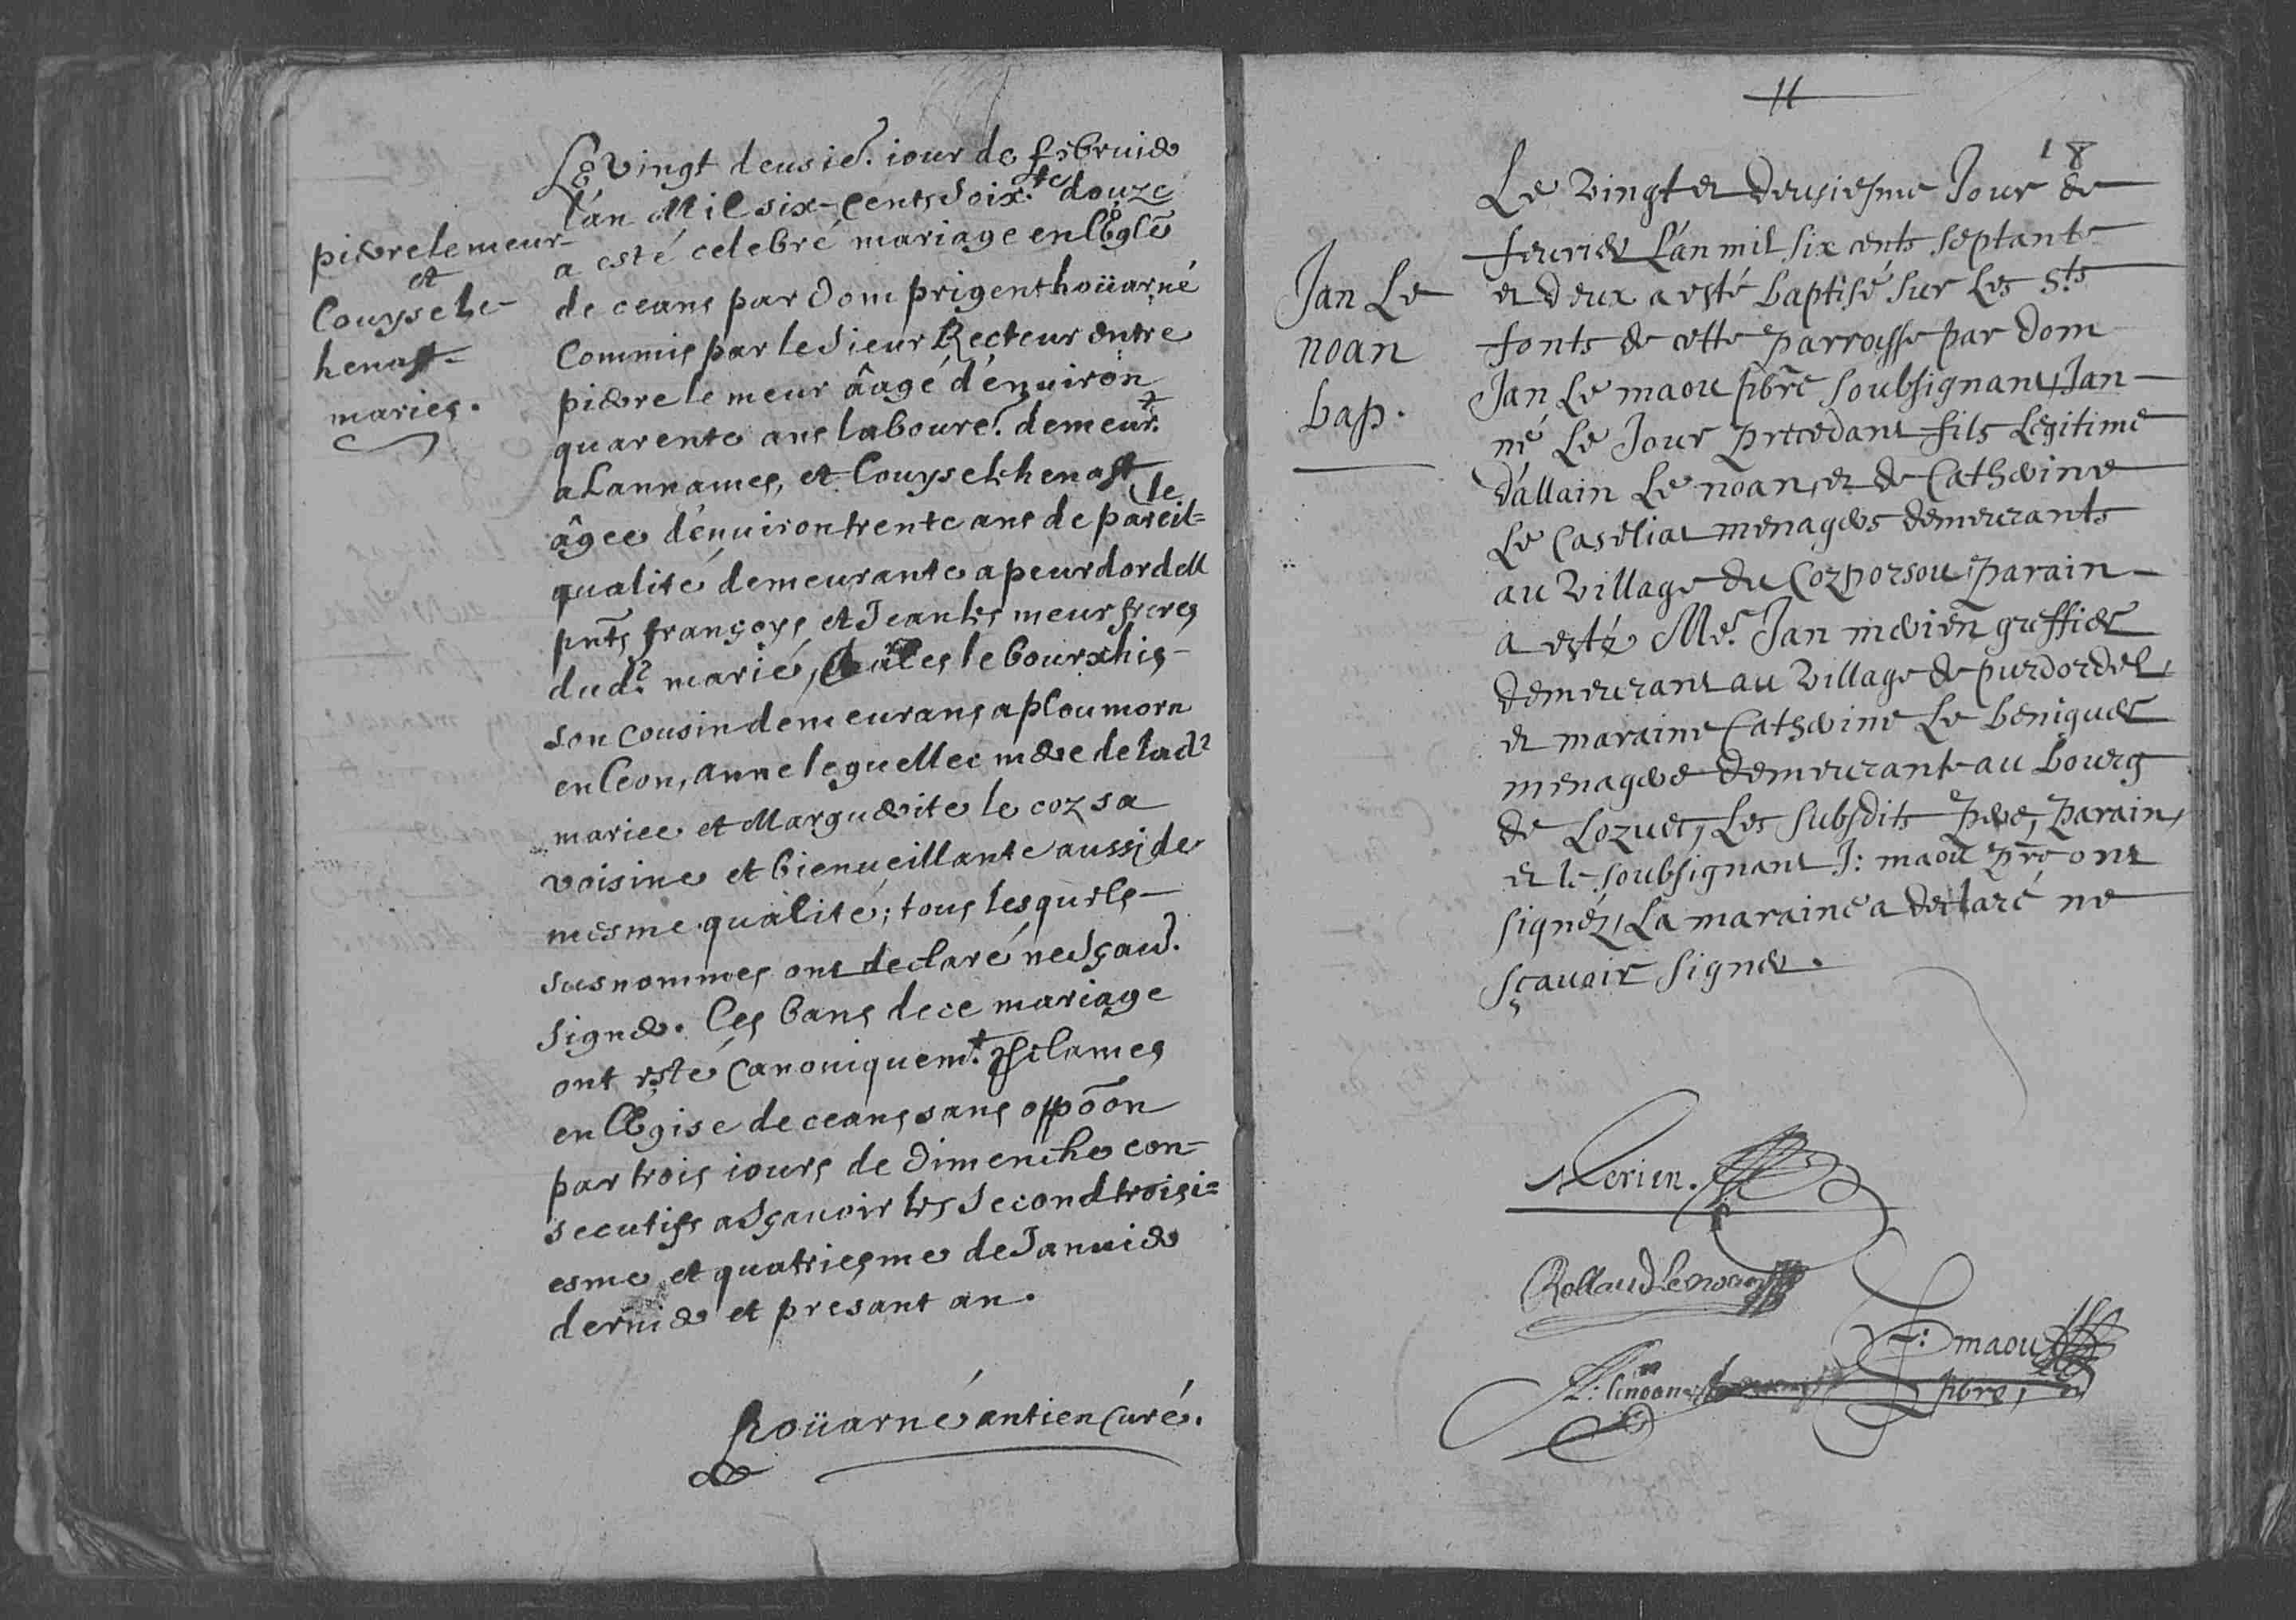 pierre le meur
et
Louyse le
henaff
mariés.
Le vingt deusie. iour de februier
l'an Mil six-cents soix.te douze
a esté celebré mariage en l'Eglē
de ceans par Dom prigent hoüarné
Commis par le Sieur Recteur entre
pierre le meur âagé d'enuiron
quarente ans laboure. demeur.t
a Lannames, et Louyse le henaff
âgee d'enuiron trente ans de pareil=le
qualité demeurante a peurdordell
pnts françoys et Jean les meur freres
dud.t marié, le bourchis
son cousin demeurans a ploumorn
en Leon, anne le guellec mere de lad.
mariee et Marguerite le coz sa
voisine et bienueillante aussi de
mesme qualité; tous lesquels
susnommes ont declaré ne sçau.
signer. Les bans de ce mariage
ont esté Canoniquem.t pclames
en l'Egise de ceans sans oppōon
par trois iours de dimenche con=
secutifs a sçauoir les second troisi=
esme et quatriesme de Januier
dernier et presant an.
hoüarné antien Curé.
11
18
Jan Le
noan
bap.
Le vingt et deusiesme Jour de
feurier L'an mil six cents septante
et deux a esté baptisé sur Les S.ts
fonts de cette parroisse par dom
Jan Le maou pbrē soubsignant, Jan
né Le Jour precedant fils Legitime
d'allain Le noan, et de Catherine
Le Caseliat menagers demeurants
au village du Cozporsou, parain
a esté Me. Jan merien greffier
demeurant au village de purdordel,
et maraine Catherine Le beniguer
menagere demeurante au bourg
de Lozuec, Les subsdits pere, parain,
et le soubsignant J: maou prē ont
signéz, La maraine a declaré ne
sçauoir signer.
Merien.
Rolland le noan
J: maou
pbre,
le noan